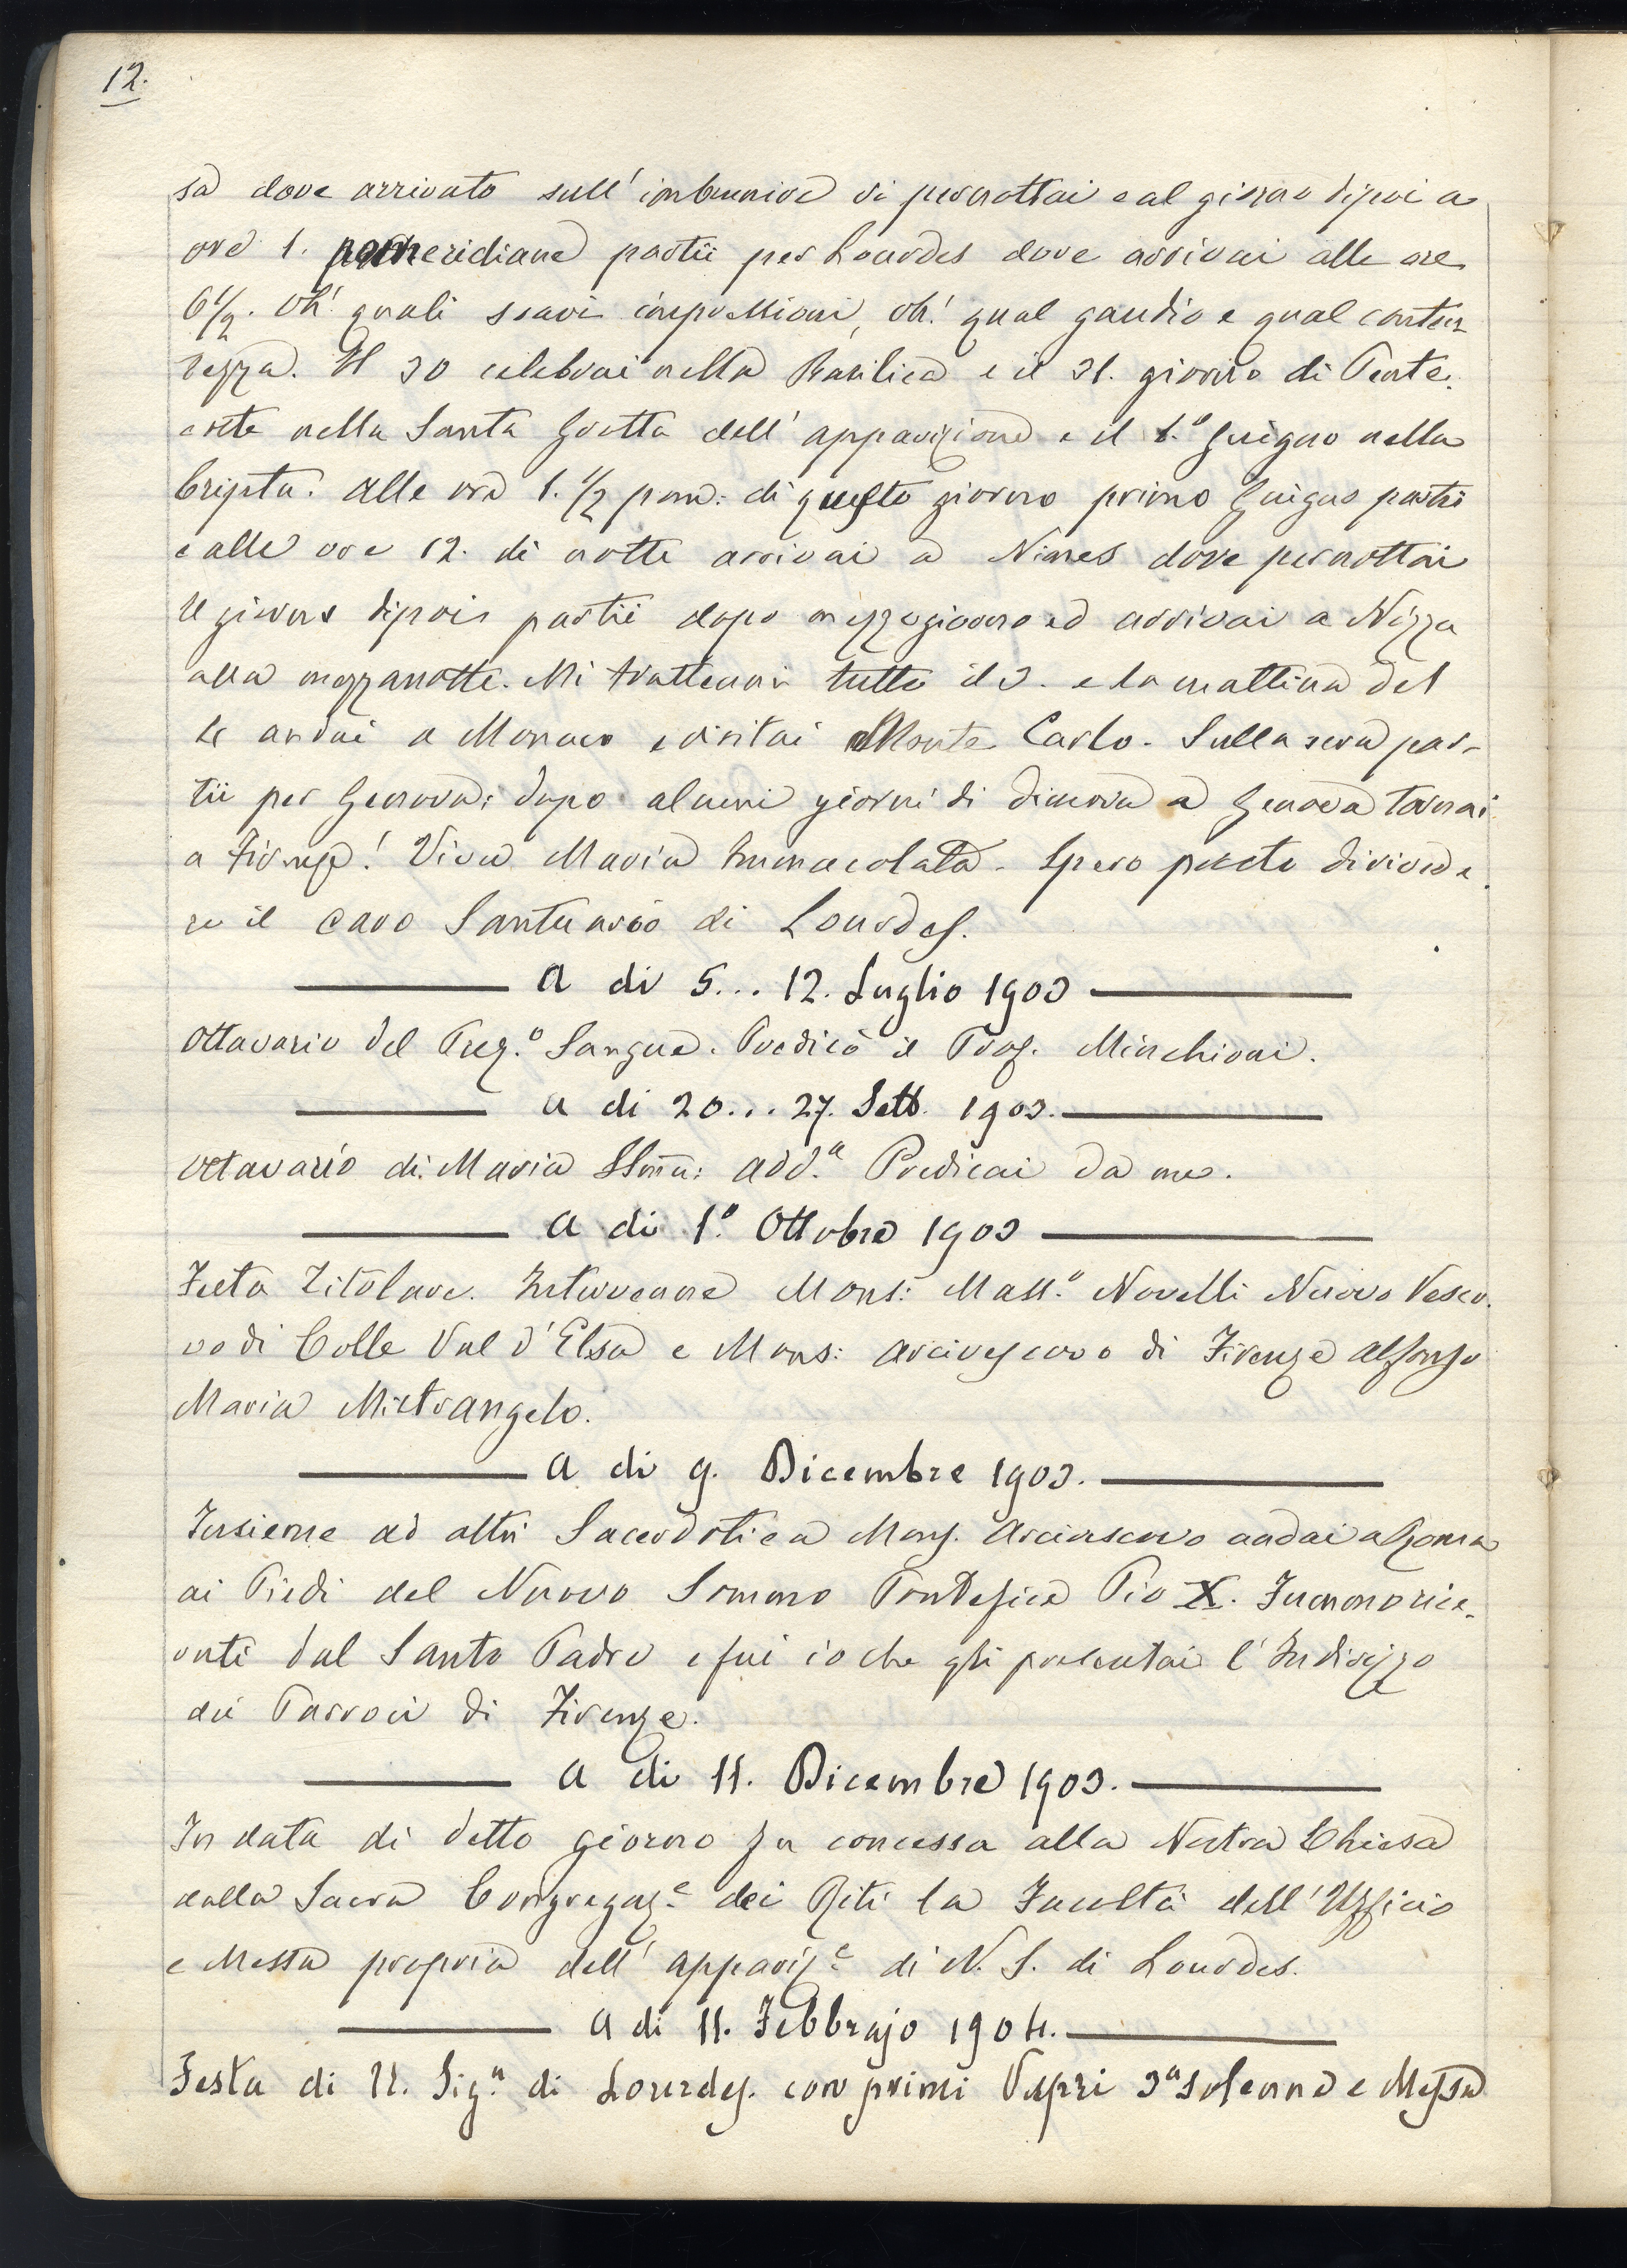 12.
sa dove arrivato sull' imbrunire vi pernottai e al giorno dipoi a
ore 1. pomeridiane partii per Lourdes dove arrivai alle ore
6 1/2. Oh! quali soavi impressioni, oh! qual gaudio e qual conten
tezza. Il 30 celebrai nella Basilica e il 31. giorno di Pente.
coste nella Santa Grotta dell' apparizione e il 1.º Giugno nella
Cripta. Alle ore 1. 1/2 pom: di questo giorno primo Giugno partii
e alle ore 12. di notte arrivai a Nimes dove pernottai
Il giorno dipoi partii dopo mezzogiorno ed arrivai a Nizza
alla mezzanotte. Mi trattenni tutto il 3. e la mattina del
4 andai a Monaco e visitai Monte Carlo. Sulla sera par-
tii per Genova; dopo alcuni giorni di dimora a Genova tornai
a Firenze! Viva Maria Immacolata. Spero presto di rivede.
re il caro Santuario di Lourdes.
A di 5... 12. Luglio 1903
Ottavario del Prez.º Sangue. Predicò il Prof. Minchioni.
A di 20... 27. Sett. 1903.
Ottavario di Maria SSma: Add.a Predicai da me.
A di 1.º Ottobre 1903
Festa Titolare. Intervenne Mons: Mass.º Novelli Nuovo Vesco.
vo di Colle Val d'Elsa e Mons: Arcivescovo di Firenze Alfonso
Maria Mistrangelo.
A di 9. Dicembre 1903.
Insieme ad altri Sacerdoti e a Mons. Arcivescovo andai a Roma
ai Piedi del Nuovo Sommo Pontefice Pio X. Fummo rice.
vuti dal Santo Padre e fui io che gli presentai l' Indirizzo
dei Parroci di Firenze.
A di 11. Dicembre 1903.
In data di detto giorno fu concessa alla Nostra Chiesa
dalla Sacra Congregaz.e dei Riti la Facoltà dell' Ufficio
e Messa propria dell' appariz.e di N. S. di Lourdes.
A di 11. Febbrajo 1904.
Festa di N. Sig.a di Lourdes. con primi Vespri 3a solenne e Messa